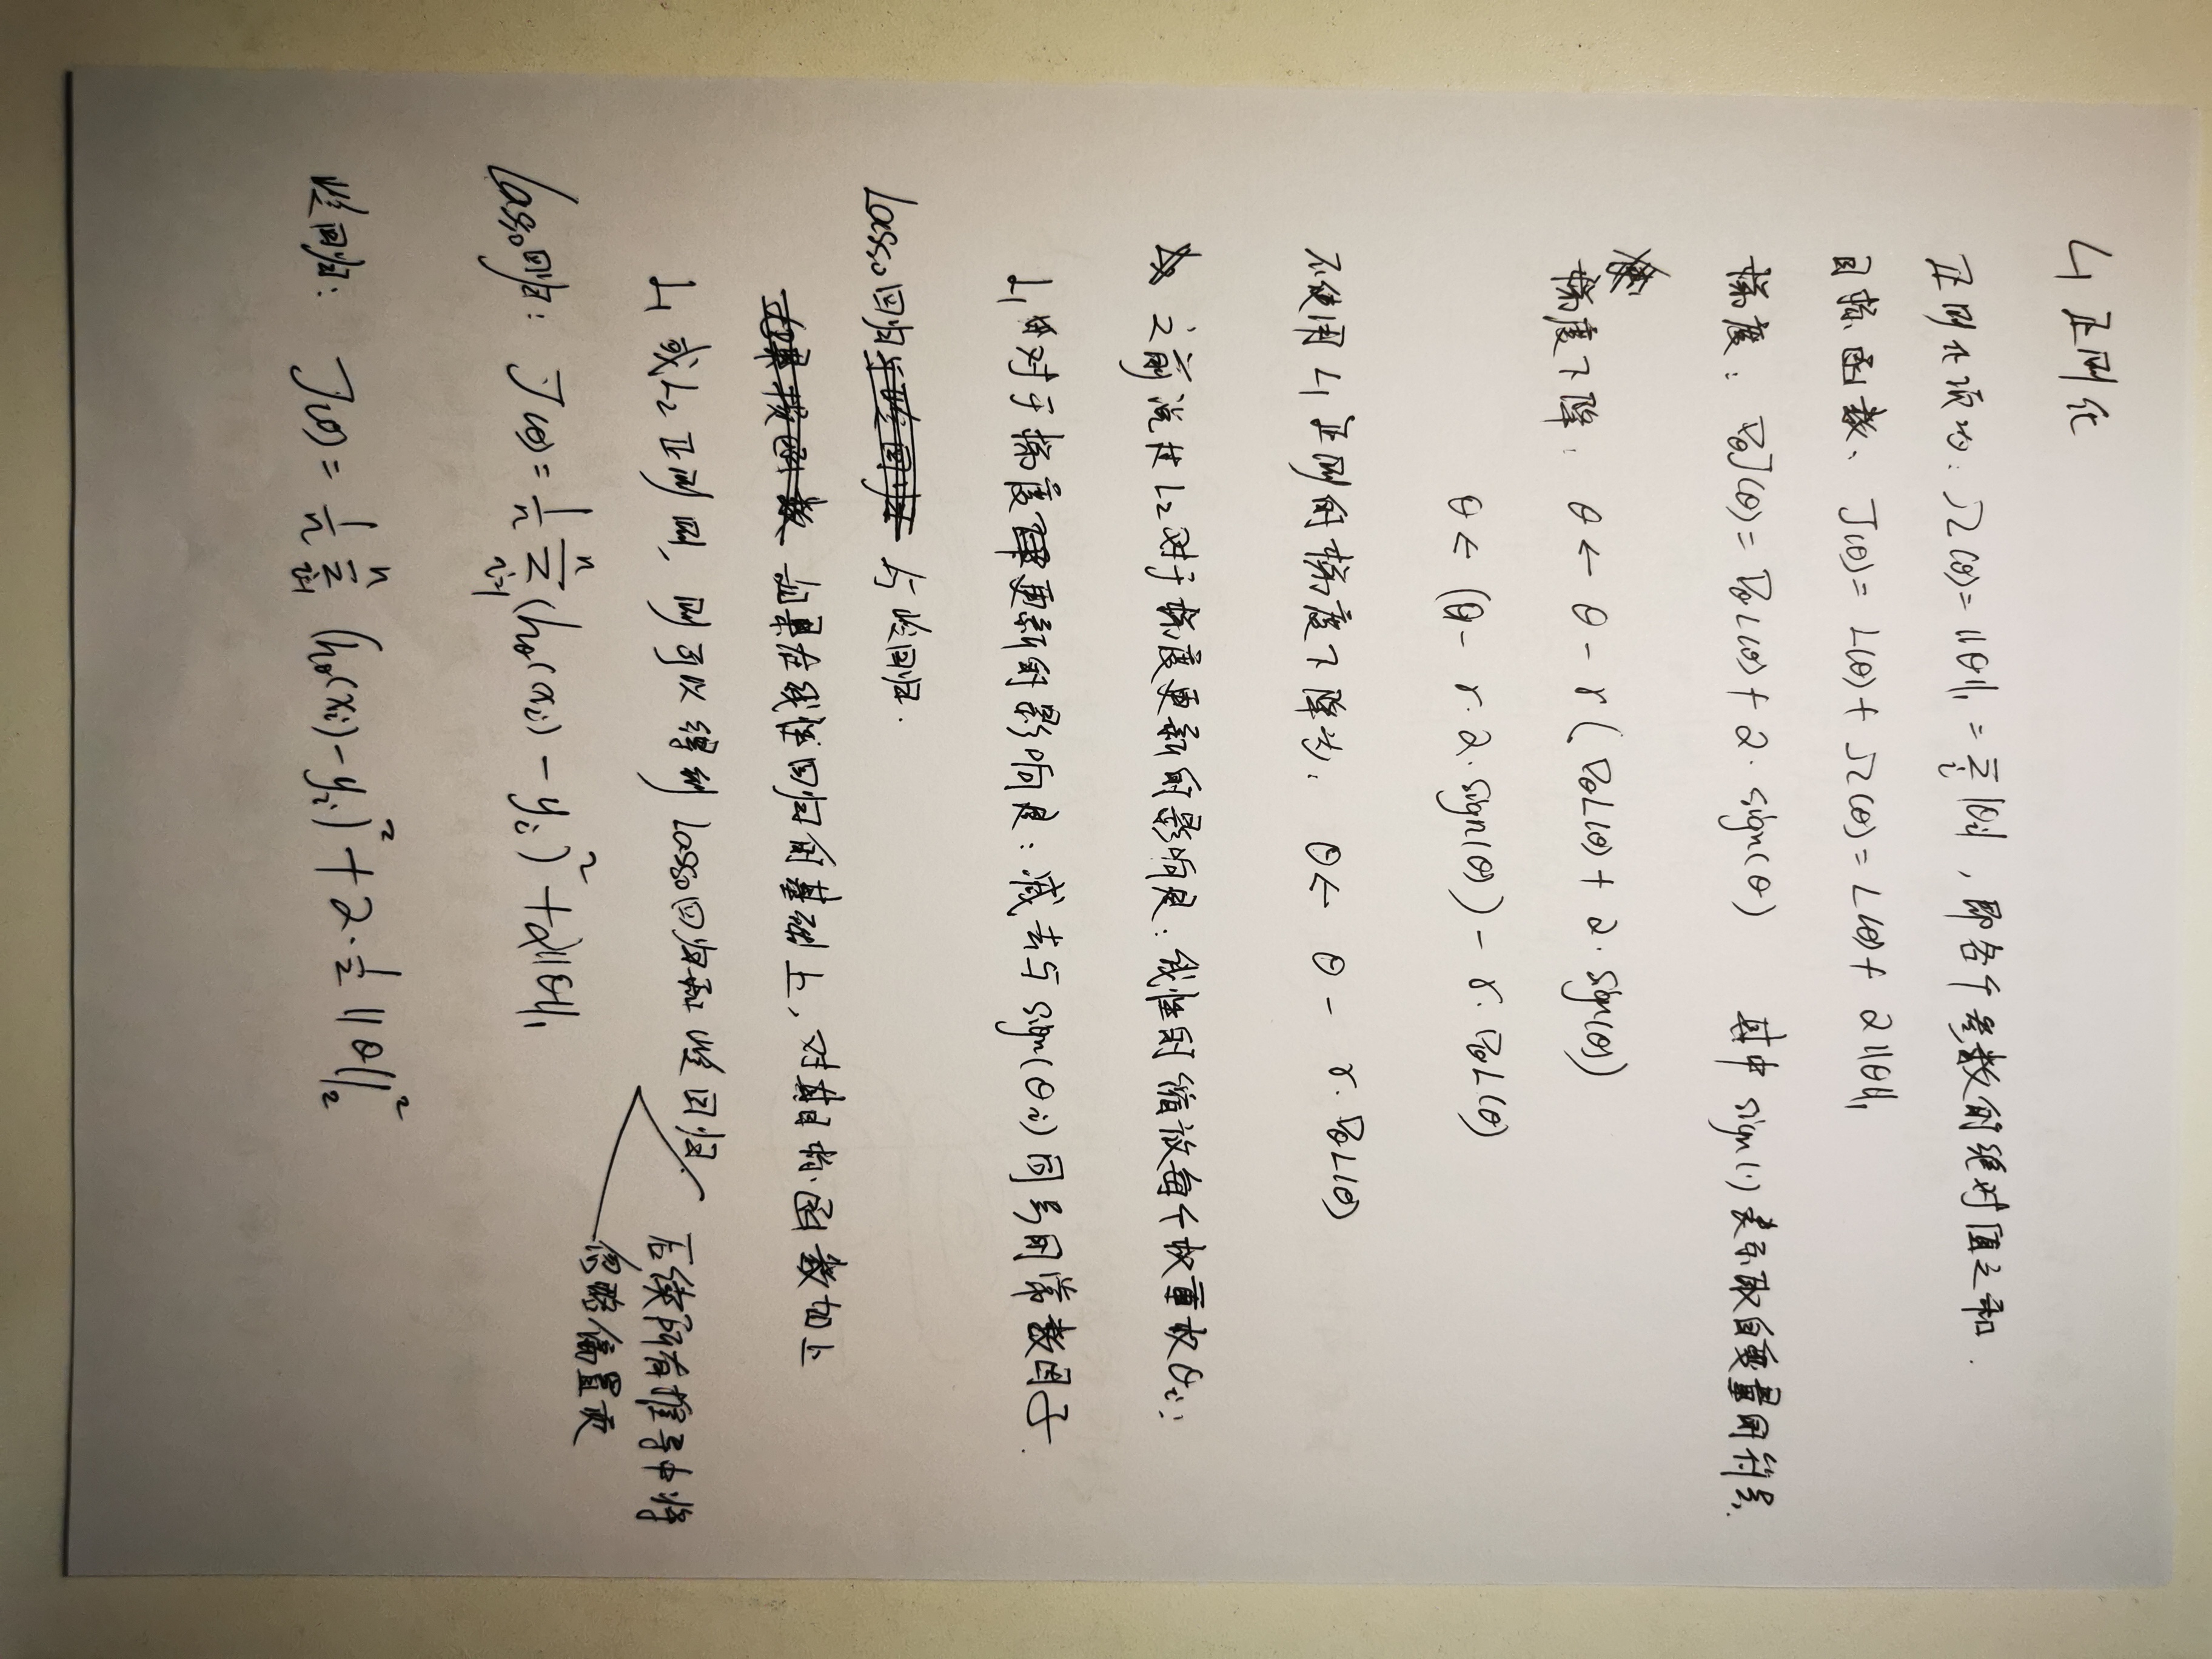 L₁ 正则化
正则化项为: Ω(θ) = ||θ||₁ = Σᵢ |θᵢ| , 即各个参数的绝对值之和.
目标函数、 J(θ) = L(θ) + Ω(θ) = L(θ) + α||θ||₁
梯度: ∇θJ(θ) = ∇θL(θ) + α · sign(θ) 其中 sign(·) 表示取自变量的符号.
梯度下降: θ ← θ - γ ( ∇θL(θ) + α · sign(θ))
θ ← (θ - γ · α · sign(θ)) - γ · ∇θL(θ)
不使用 L₁ 正则的梯度下降为: θ ← θ - γ · ∇θL(θ)
之前说过 L₂ 对于梯度更新的影响是: 线性的缩放每个权重权 θᵢ;
L₁ 对于梯度更新的影响是: 减去与 sign(θᵢ) 同号的常数因子.
Lasso回归 与岭回归.
如果在线性回归的基础上, 对其目标函数加上
L₁ 或 L₂ 正则则, 则可以得到 Lasso回归和 岭回归.
后续所有推导中将
忽略偏置项
Lasso回归: J(θ) = 1/n Σⁿᵢ₌₁ (hθ(xᵢ) - yᵢ)² + α||θ||₁
岭回归: J(θ) = 1/n Σⁿᵢ₌₁ (hθ(xᵢ) - yᵢ)² + α · 1/2 ||θ||₂²